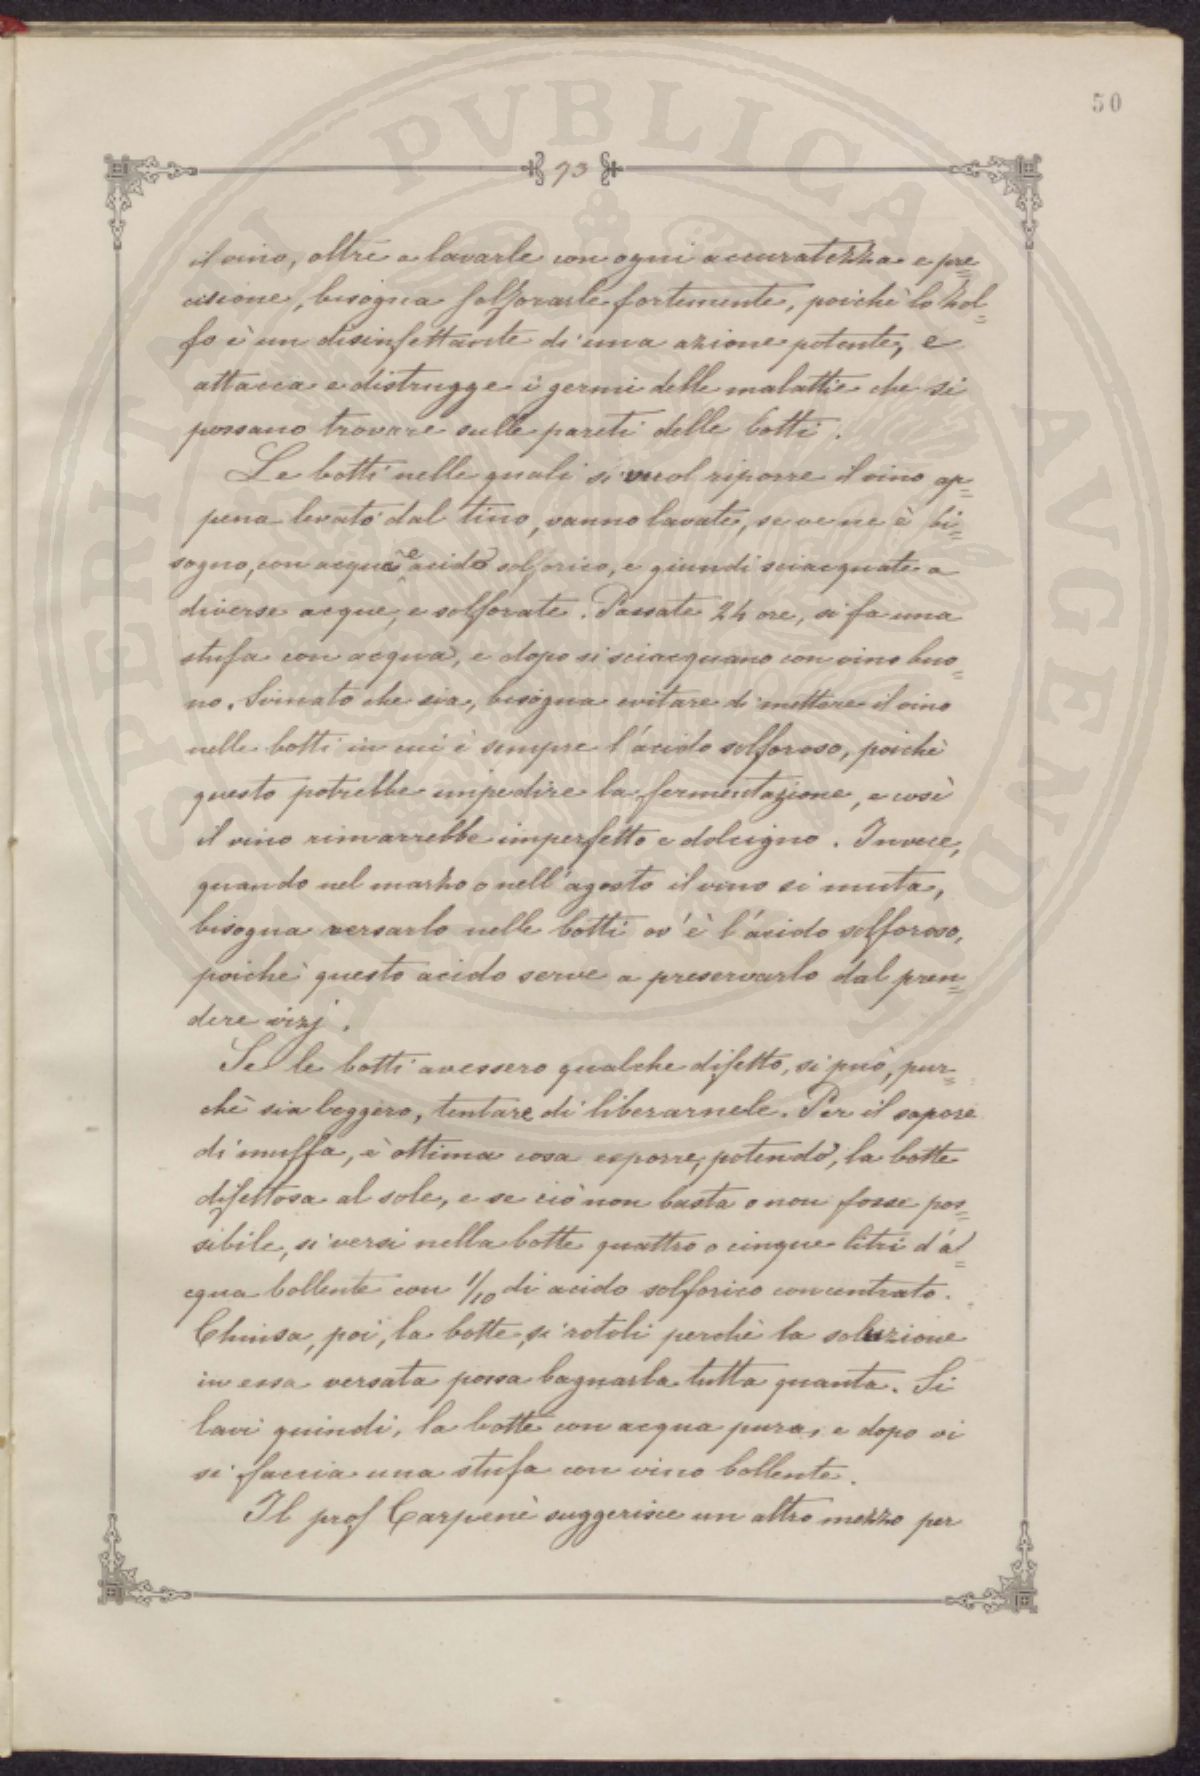 50
93
il vino, oltre a lavarle con ogni accuratezza e pre=
cisione, bisogna solforarle fortemente, poichè lo zol=
fo è un disinfettante di una azione potente, e
attacca e distrugge i germi delle malattie che si
possano trovare sulle pareti delle botti.
Le botti nelle quali si vuol riporre il vino ap=
pena levato dal tino, vanno lavate, se ve ne è bi=
sogno, con acqua e acido solforico, e quindi sciacquate a
diverse acque, e solforate. Passate 24 ore, si fa una
stufa con acqua, e dopo si sciacquano con vino buo=
no. Svinato che sia, bisogna evitare di mettere il vino
nelle botti in cui è sempre l'acido solforoso, poichè
questo potrebbe impedire la fermentazione, e così
il vino rimarrebbe imperfetto e dolcigno. Invece,
quando nel marzo o nell'agosto il vino si muta,
bisogna versarlo nelle botti ov'è l'acido solforoso,
poichè questo acido serve a preservarlo dal pren=
dere vizj.
Se le botti avessero qualche difetto, si può, pur=
chè sia leggero, tentare di liberarnele. Per il sapore
di muffa, è ottima cosa esporre, potendo, la botte
difettosa al sole, e se ciò non basta o non fosse pos=
sibile, si versi nella botte quattro o cinque litri d'a=
cqua bollente con 1/10 di acido solforico concentrato.
Chiusa, poi, la botte, si rotoli perchè la soluzione
in essa versata possa bagnarla tutta quanta. Si
lavi quindi, la botte con acqua pura, e dopo vi
si faccia una stufa con vino bollente.
Il prof Carpenè suggerisce un altro mezzo per
PVBLICAE AVGENDAE
PROSPERITATI